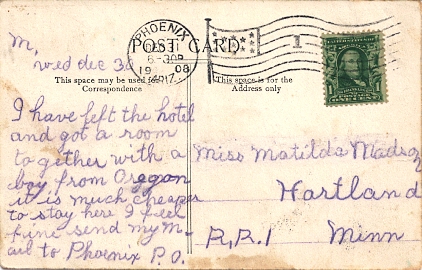 PHOENIX
6-30P
19 08
ARIZ.
POST CARD
1
This space may be used for
Correspondence
This space is for the
Address only
M,
wed dec 30
I have left the hotel
and got a room
to gether with a
boy from Oregon
it is much cheaper
to stay here I feel
fine send my M-
ail to Phoenix P.O.
Miss Matilda Madson
Hartland
R,R.1 Minn
1 1